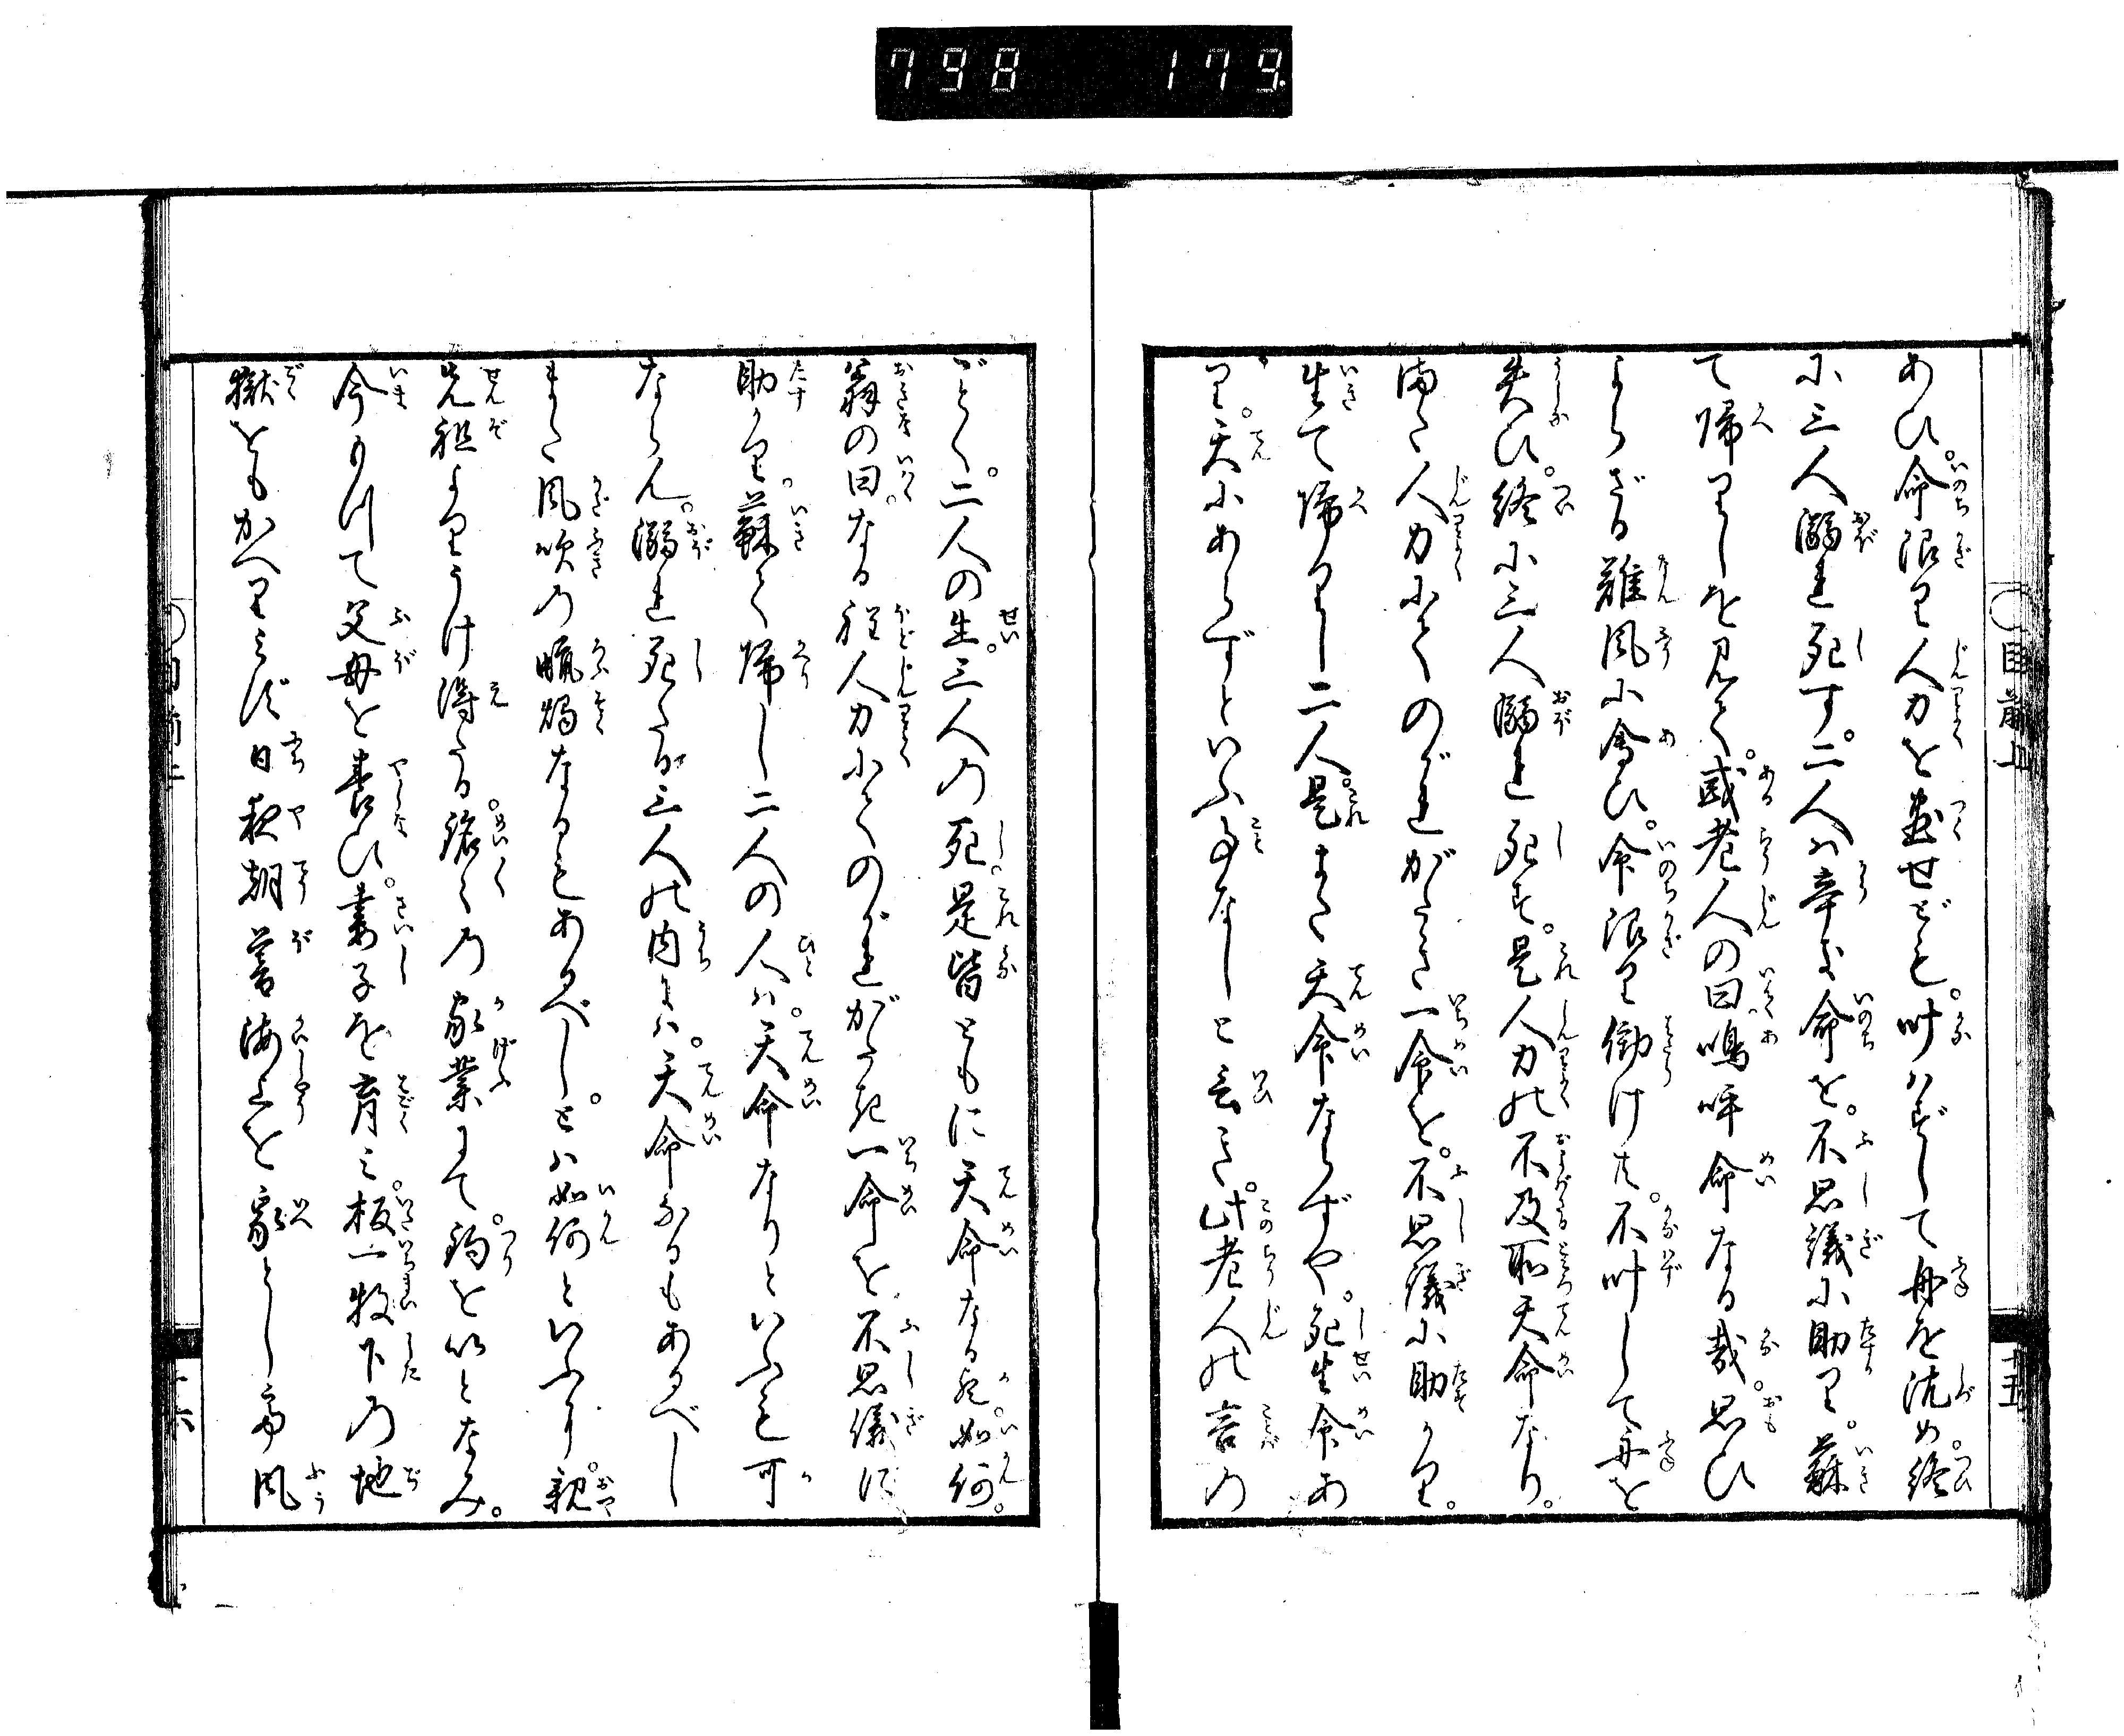 798 179
目前上
十五
あひ。命限り人力を尽せども。叶はずして舟を沈め。終
に三人溺れ死す。二人は辛き命を。不思議に助り。蘇
て帰りしを見て。或老人の曰嗚呼命なる哉。思ひ
よらざる難風に会ひ。命限り働けど。不叶して舟を
失ひ。終に三人溺れ死す。是人力の不及所天命なり。
満た人力にてのがれがたき一命を。不思議に助かり。
生て帰りし二人。是また天命ならずや。死生命あ
り。天にあらずといふ事なしと云へり。此老人の言の
ごとく。二人の生。三人の死。是皆ともに天命なるか。如何。
翁の曰。なる程人力にてのがれがたき一命を不思儀に
助かり。蘇て帰し二人の人は。天命なりといふも可
ならん。溺れ死たる三人の内には。天命なるもあるべし
また風吹の蝋燭なるもあるべし。とは如何といふに。親
先祖よりうけ得たる。銘々の家業にて。釣をいとなみ。
今もつて父母を養ひ。妻子を育み。板一枚下の地
獄をもかへりみず日夜朝暮海上を家とし。雨風
目前上
十六